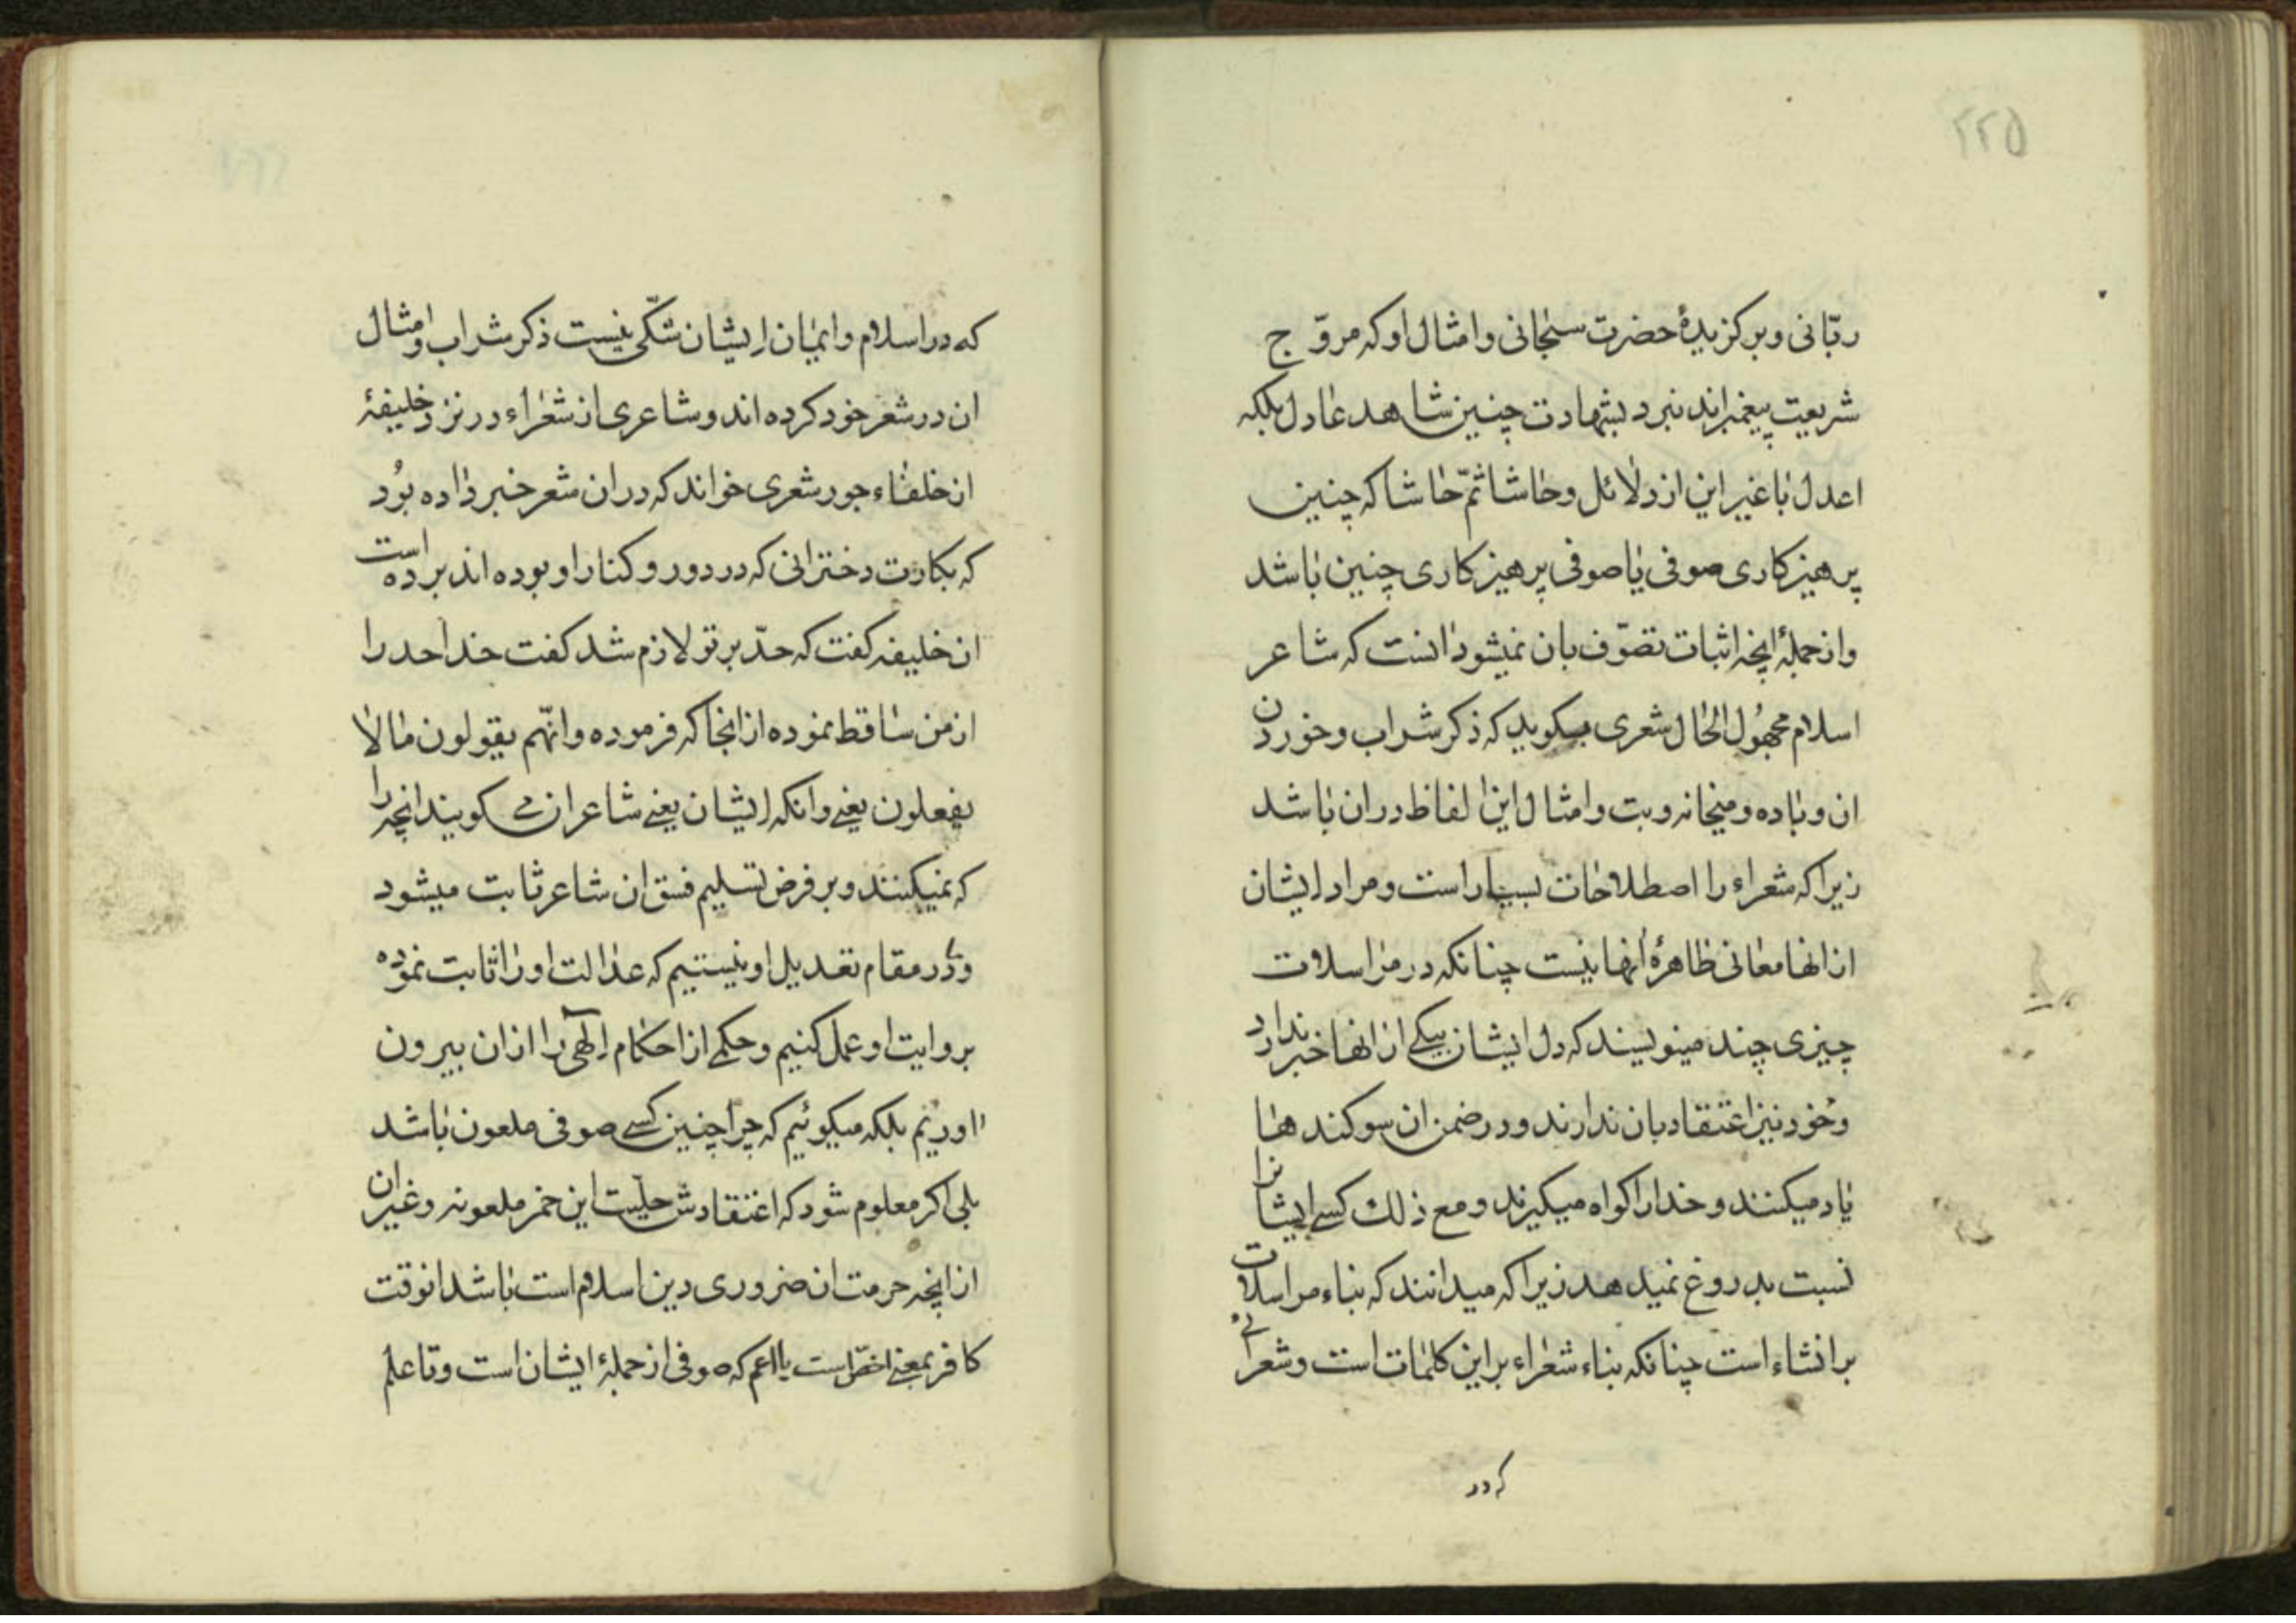 ۲۲۵
ربّانی و برکزیدهٔ حضرت سبحانی و امثال او که مروّج
شریعت پیغمبراند نبرد بشهادت چنین شاهد عادل بلکه
اعدل با غیر این از دلائل و حاشا ثمّ حاشا که چنین
پرهیزکاری صوفی یا صوفی پرهیزکاری چنین باشد
و از جملهٔ انچه اثبات تصوّف بان نمیشود انست که شاعر
اسلام مجهول الحال شعری میکوید که ذکر شراب و خوردن
ان و باده و میخانه و بت و امثال این الفاظ دران باشد
زیرا که شعراء را اصطلاحات بسیار است و مراد ایشان
از انها معانی ظاهرهٔ انها نیست چنانکه در مراسلات
چیزی چند مینویسند که دل ایشان بیکی از انها خبر ندارد
و خود نیز اعتقاد بان ندارند و در ضمن ان سوکندها
یاد میکنند و خدا را کواه میکیرند و مع ذلک کسی ایشانرا
نسبت بدروغ نمیدهد زیرا که میدانند که بناء مراسلات
بر انشاء است چنانکه بناء شعراء بر این کلمات است و شعرائی
که در
که در اسلام و ایمان ایشان شکّی نیست ذکر شراب و امثال
ان در شعر خود کرده اند و شاعری از شعراء در نزد خلیفهٔ
از خلفاء جور شعری خواند که در ان شعر خبر داده بود
که بکارت دخترانی که در دور و کنار او بوده اند برده است
ان خلیفه کفت که حدّ بر تو لازم شد کفت خدا حد را
از من ساقط نموده از انجا که فرموده و انّهم یقولون ما لا
یفعلون یعنی و انکه ایشان یعنی شاعران می کویند انچه را
که نمیکنند و بر فرض تسلیم فسق ان شاعر ثابت میشود
و ما در مقام تعدیل او نیستیم که عدالت او را ثابت نموده
بروایت او عمل کنیم و حکمی از احکام الهی را از ان بیرون
اوریم بلکه میکوئیم که چرا چنین کسی صوفی ملعون باشد
بلی اکر معلوم شود که اعتقادش حلّیت این خمر ملعونه و غیر ان
از انچه حرمت ان ضروری دین اسلام است باشد انوقت
کافر بمعنی اخصّ است یا اعم که صوفی از جملهٔ ایشان است و تا علم